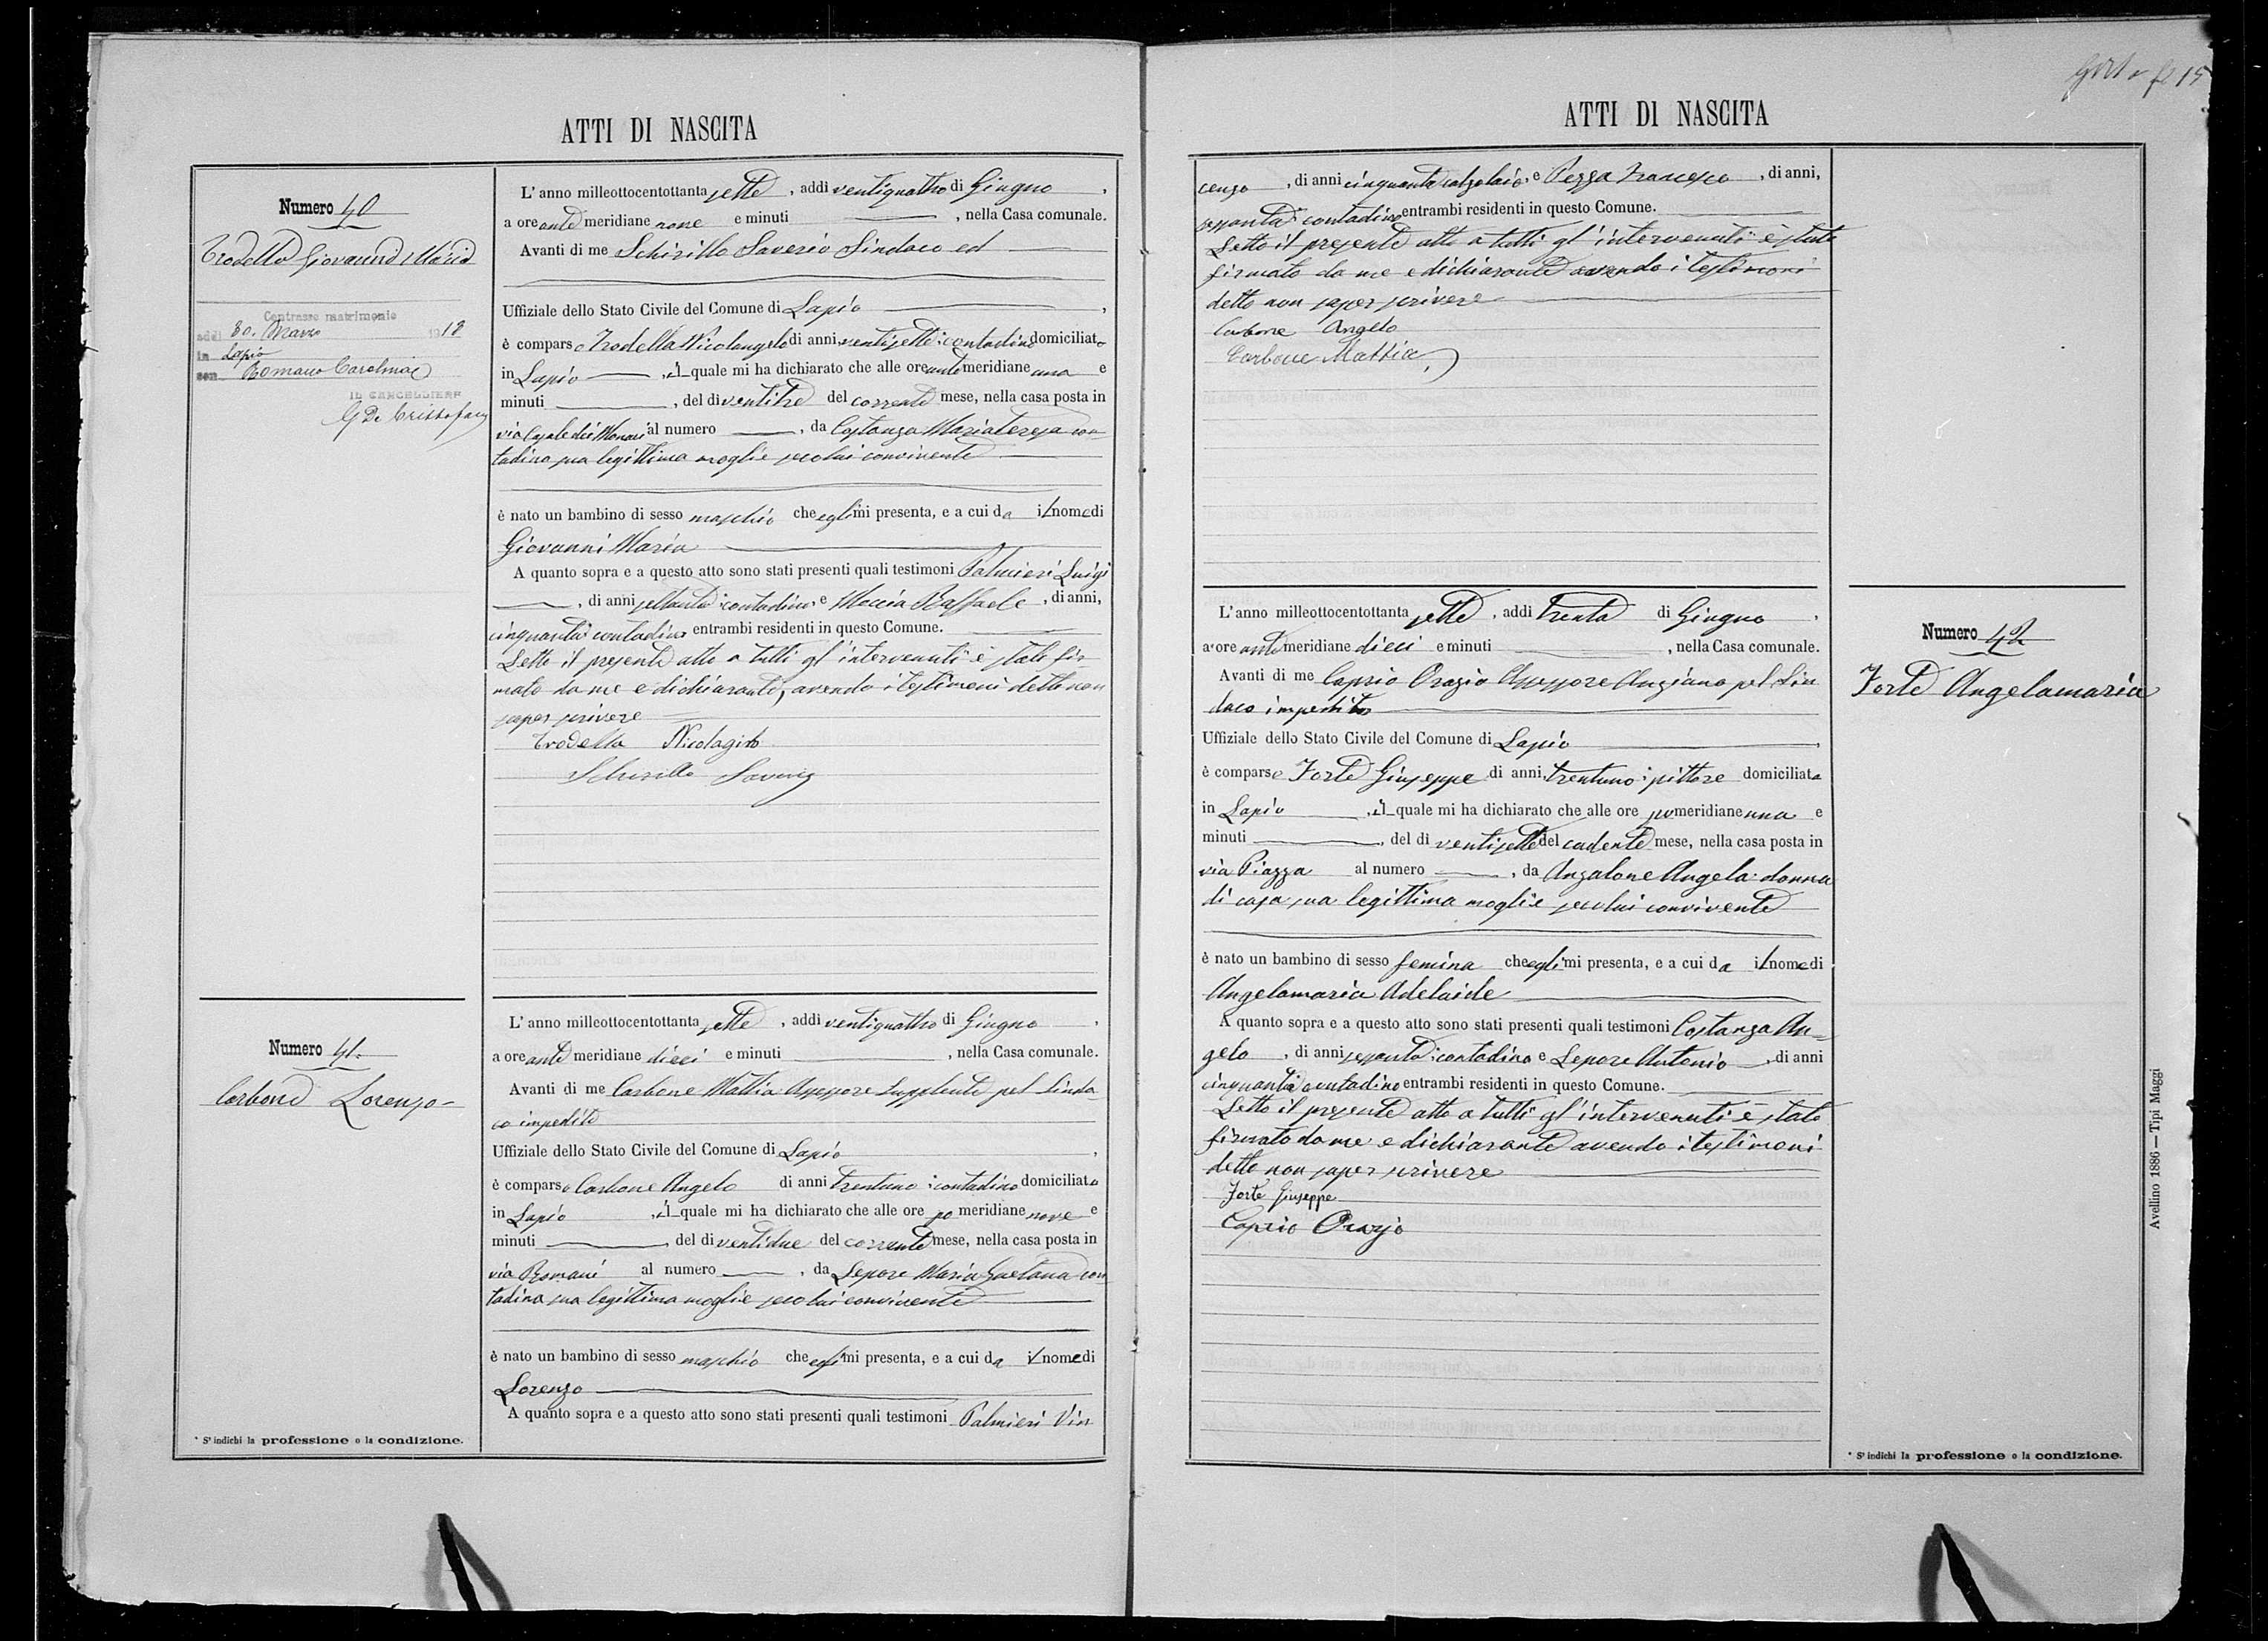 ATTI DI NASCITA
Numero 40
Trodella Giovanni Maria
Contrasse matrimonio
addì 30. Marzo 1912
in Lapio
con Romano Carolina
IL CANCELLIERE
G De Cristofaro
L' anno milleottocentottanta sette, addì ventiquattro di Giugno,
a ore ante meridiane nove e minuti, nella Casa comunale.
Avanti di me Schirillo Saverio Sindaco ed
Uffiziale dello Stato Civile del Comune di Lapio,
è comparso Trodella Nicolangelo di anni ventisette contadino domiciliato
in Lapio, il quale mi ha dichiarato che alle ore ante meridiane una e
minuti, del dì ventitre del corrente mese, nella casa posta in
via Casale dei Monaci al numero, da Costanza Mariateresa con-
tadina sua legittima moglie secolui convivente
è nato un bambino di sesso maschio che egli mi presenta, e a cui da il nome di
Giovanni Maria
A quanto sopra e a questo atto sono stati presenti quali testimoni Palmieri Luigi
, di anni settanta contadino e Moccia Raffaele, di anni,
cinquanta contadino entrambi residenti in questo Comune.
Letto il presente atto a tutti gl'intervenuti è stato fir-
mato da me e dichiarante, avendo i testimoni detto non
saper scrivere
Trodella
Schirillo Saverio
Numero 41.
Carbone Lorenzo-
L' anno milleottocentottanta sette, addì ventiquattro di Giugno,
a ore ante meridiane dieci e minuti, nella Casa comunale.
Avanti di me Carbone Mattia Assessore Supplente pel Sinda
co impedito
Uffiziale dello Stato Civile del Comune di Lapio,
è comparso Carbone Angelo di anni trentuno contadino domiciliato
in Lapio, il quale mi ha dichiarato che alle ore po meridiane nove e
minuti, del dì ventidue del corrente mese, nella casa posta in
via Romani al numero, da Lepore Maria Gaetana con
tadina sua legittima moglie secolui convivente
è nato un bambino di sesso maschio che egli mi presenta, e a cui da il nome di
Lorenzo
A quanto sopra e a questo atto sono stati presenti quali testimoni Palmieri Vin
* S'indichi la professione o la condizione.
15
ATTI DI NASCITA
cenzo, di anni cinquanta calzolaio, e Pezza Francesco, di anni,
sessanta contadino entrambi residenti in questo Comune.
Letto il presente atto a tutti gl'intervenuti è stato
firmato da me e dichiarante avendo i testimoni
detto non saper scrivere
Carbone Angelo
Carbone Mattia
L'anno milleottocentottanta sette, addì trenta di Giugno,
a ore ante meridiane dieci e minuti, nella Casa comunale.
Avanti di me Caprio Orazio Assessore Anziano pel Sin
daco impedito
Uffiziale dello Stato Civile del Comune di Lapio,
è comparso Forte Giuseppe di anni trentuno pittore domiciliato
in Lapio, il quale mi ha dichiarato che alle ore pomeridiane una e
minuti, del dì ventisette del cadente mese, nella casa posta in
via Piazza al numero, da Anzalone Angela donna
di casa sua legittima moglie secolui convivente
è nato un bambino di sesso femina che egli mi presenta, e a cui da il nome di
Angelamaria Adelaide
A quanto sopra e a questo atto sono stati presenti quali testimoni Costanza An-
gelo, di anni sessanta contadino e Lepore Antonio, di anni
cinquanta contadino entrambi residenti in questo Comune.
Letto il presente atto a tutti gl'intervenuti è stato
firmato da me e dichiarante avendo i testimoni
detto non saper scrivere
Forte Giuseppe
Caprio Orazio
Numero 42
Forte Angelamaria
Avellino 1886 — Tipi Maggi
* S'indichi la professione o la condizione.